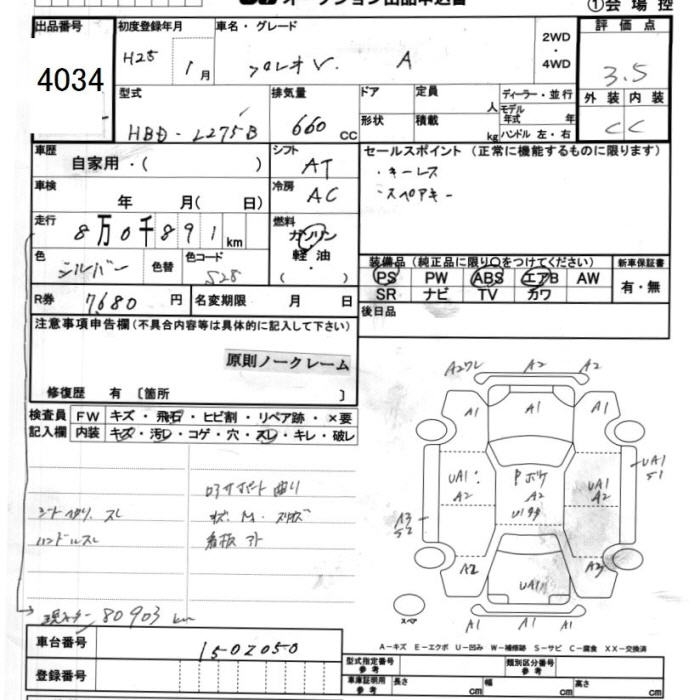 オークション出品申込書
①会場控
出品番号
4034
初度登録年月
H25 1月
車名・グレード
A
2WD
・
4WD
評価点
3.5
型式
HBD-L275B
排気量
660 CC
ドア
形状
定員
人
積載
kg
ディーラー・並行
モデル
年式 年
ハンドル 左・右
外装 内装
C C
車歴
自家用・( )
シフト
AT
セールスポイント (正常に機能するものに限ります)
・キーレス
・スペアキー
車検
年 月( 日)
冷房
AC
走行
8万0千891km
燃料
ガソリン
軽油
( ・ )
色
シルバー
色替
色コード
S28
装備品 (純正品に限り○をつけてください)
PS PW ABS エアB AW
SR ナビ TV カワ
新車保証書
有・無
R券
7680円
名変期限 月 日
後日品
注意事項申告欄(不具合内容等は具体的に記入して下さい)
原則ノークレーム
修復歴 有〔箇所 〕
検査員
記入欄
FW キズ・飛石・ヒビ割・リペア跡・×要
内装 キズ・汚レ・コゲ・穴・スレ・キレ・破レ
ロアサポート曲り
シートヘタリ、スレ
ハンドルスレ
看板アト
現メーター80903km
A2ワレ A2 A2
A1 A1 A1
UA1 A2
Pボケ A2
UA1 A2
UA1 S1
A3 S2
A2 UA1 A3
A1 A1 A1
スペア
車台番号
1502050
登録番号
A-キズ E-エクボ U-凹み W-補修跡 S-サビ C-腐食 XX-交換済
型式指定番号
参考
類別区分番号
参考
車庫証明用
参考
長さ cm 幅 cm 高さ cm